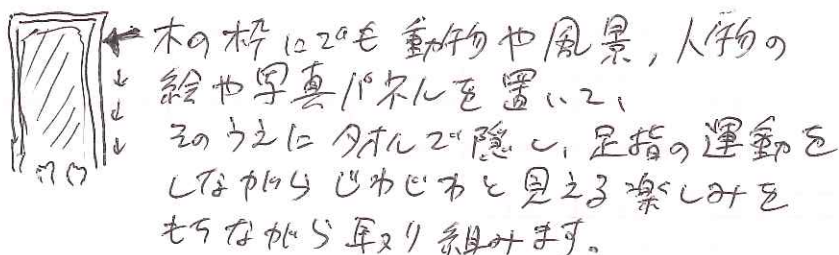 木の枠にでも動物や風景、人物の
絵や写真パネルを置いて、
そのうえにタオルで隠し、足指の運動を
しながらじわじわと見える楽しみを
もちながら取り組みます。